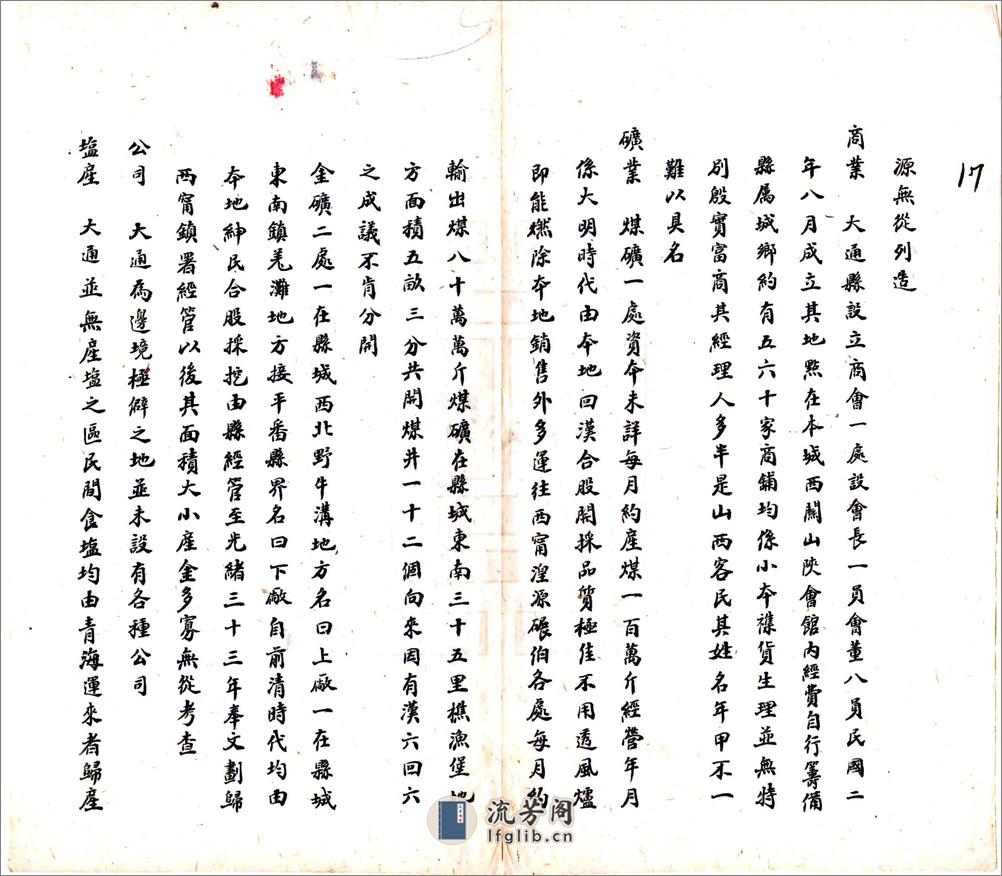 17
源無從列造
商業　大通縣設立商會一處設會長一員會董八員民國二
年八月成立其地點在本城西關山陝會館內經費自行籌備
縣属城鄉約有五六十家商鋪均係小夲襍貨生理並無特
别殷實富商其經理人多半是山西客民其姓名年甲不一
難以具名
礦業　煤礦一處資夲未詳每月約產煤一百萬斤經營年月
係大明時代由夲地回漢合股開採品質極佳不用透風爐
即能燃除夲地銷售外多運往西甯湟源碾伯各處每月約
輸出煤八十萬萬斤煤礦在縣城東南三十五里樵漁堡地
方面積五畝三分共開煤井一十二個向來因有漢六回六
之成議不肯分開
金礦二處一在縣城西北野牛溝地方名曰上廠一在縣城
東南鎮羌灘地方接平番縣界名曰下廠自前清時代均由
夲地紳民合股採挖由縣經管至光緒三十三年奉文劃歸
西甯鎮署經管以後其面積大小產金多寡無從考查
公司　大通為邊境極僻之地並未設有各種公司
塩產　大通並無產塩之區民間食塩均由青海運來者歸產
流芳阁
lfglib.cn